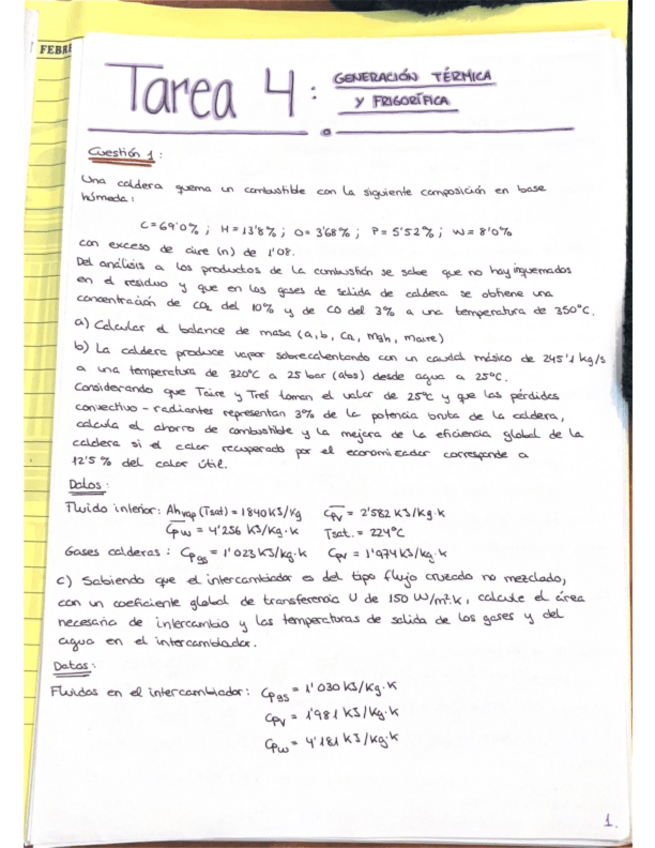 FEBRE
Tarea 4 : GENERACIÓN TÉRMICA
Y FRIGORÍFICA
Cuestión 1 :
Una caldera quema un combustible con la siguiente composición en base
húmeda :
C = 69'0% ; H = 13'8% ; O = 3'68% ; P = 5'52% ; W = 8'0%
con exceso de aire (n) de 1'08.
Del análisis a los productos de la combustión se sabe que no hay inquemados
en el residuo y que en los gases de salida de caldera se obtiene una
concentración de CO₂ del 10% y de CO del 3% a una temperatura de 350ºC.
a) Calcular el balance de masa (a, b, Ca, mgh, maire)
b) La caldera produce vapor sobrecalentando con un caudal másico de 245'1 kg/s
a una temperatura de 320ºC a 25 bar (abs) desde agua a 25ºC.
Considerando que Taire y Tref toman el valor de 25ºC y que las pérdidas
convectivo - radiantes representan 3% de la potencia bruta de la caldera,
calcula el ahorro de combustible y la mejora de la eficiencia global de la
caldera si el calor recuperado por el economizador corresponde a
12'5 % del calor útil.
Datos :
Fluido interior : Δhvap (Tsat) = 1840 KJ/Kg Cpv = 2'582 KJ/Kg·K
Cpw = 4'256 KJ/Kg·K Tsat. = 224ºC
Gases calderas : Cpgs = 1'023 KJ/kg·K Cpv = 1'974 KJ/kg·K
c) Sabiendo que el intercambiador es del tipo flujo cruzado no mezclado,
con un coeficiente global de transferencia U de 150 W/m²·K, calcule el área
necesaria de intercambio y las temperaturas de salida de los gases y del
agua en el intercambiador.
Datos :
Fluidos en el intercambiador : Cpgs = 1'030 KJ/Kg·K
Cpv = 1'981 KJ/Kg·K
Cpw = 4'181 KJ/Kg·K
1.